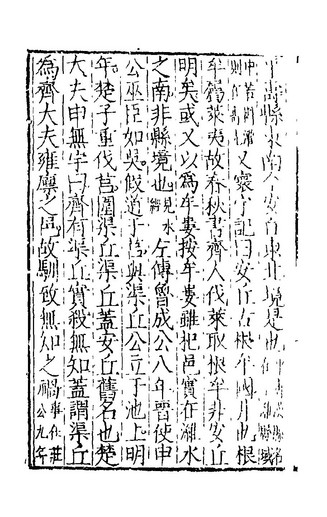 平昌縣東南今安丘東北境是也
又寰宇記曰安丘古根牟國月也根
牟屬萊夷故春秋書齊人伐萊取根牟非安丘
明矣或又以為牟婁按牟婁雖杞邑實在濰水
之南非縣境也見水經左傳魯成公八年晉使申
公巫臣如吳假道于莒與渠丘公立于池上明
年楚子重伐莒圍渠丘渠丘蓋安丘舊名也楚
大夫申無宇曰齊有渠丘實殺無知蓋謂渠丘
為齊大夫雍廩之邑故馴致無知之禍事在莊公九年